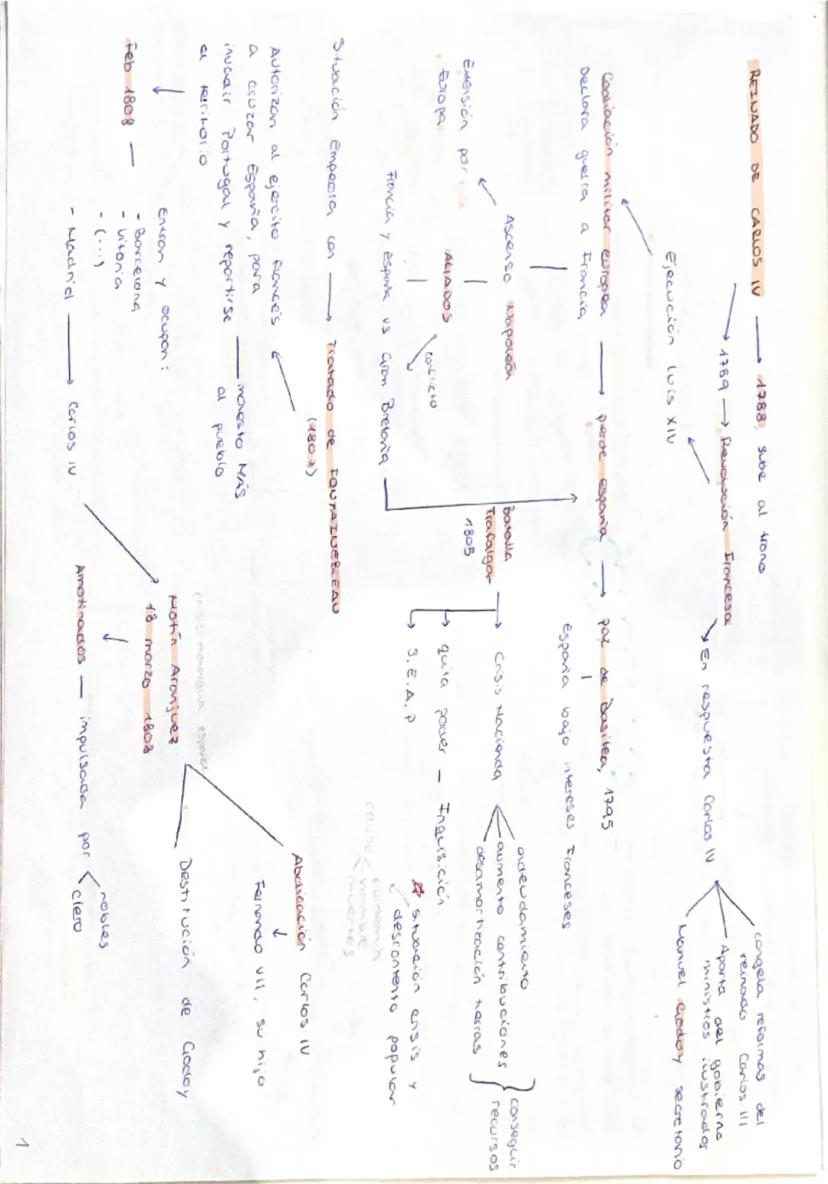 REINADO DE CARLOS IV → 1788, sube al trono
1789 → Revolución Francesa
En respuesta Carlos IV
congela reformas del
reinado Carlos III
Aparta del gobierno
ministros ilustrados
Manuel Godoy secretario
Ejecución Luis XIV
Coaliación militar europea → pierde españa → paz de Basilea, 1795
Declara guerra a Francia
España bajo intereses Franceses
Ascenso Napoleón
Extensión por
Europa
ALIADOS
conflicto
Francia y España vs Gran Bretaña
Batalla
Trafalgar
1805
Crisis Hacienda
endeudamiento
aumento contribuciones
desamortización tierras
conseguir
recursos
quita poder – Inquisición
S.E.A.P
situación crisis y
descontento popular
causa
epidemia
hambre
muertes
Situación Empeora con → Tratado de FONTAINEBLEAU
(1807)
Autorizan al ejercito francés
a cruzar España, para
invadir Portugal y repartirse
el territorio
molesto más
al pueblo
Feb 1808 —
Entran y ocupan:
- Barcelona
- Vitoria
- (...)
- Madrid → Carlos IV
crisis monarquía española
Motín Aranjuez
18 marzo 1808
Abdicación Carlos IV
Fernando VII, su hijo
Destitución de Godoy
Amotinados — impulsada por
nobles
clero
1